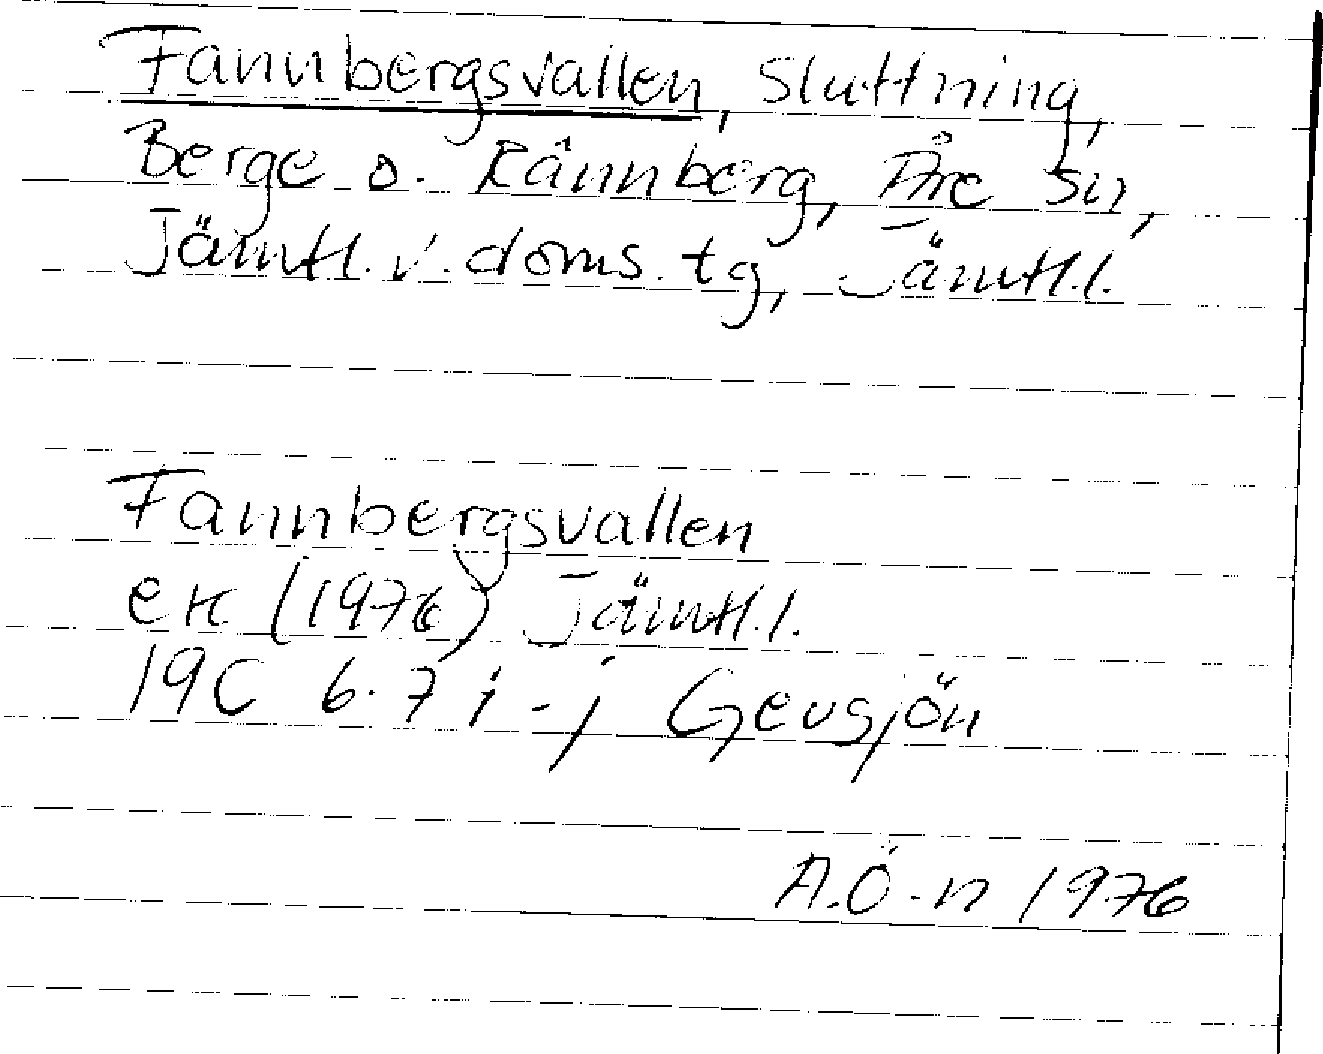 Fannbergsvallen, sluttning,
Berge o. Rännberg, Åre sn,
Jämtl. v. doms. tg, Jämtl. l.
Fannbergsvallen
ek (1976) Jämtl. l.
19C 6-7 i-j Gevsjön
A.Ö-n 1976